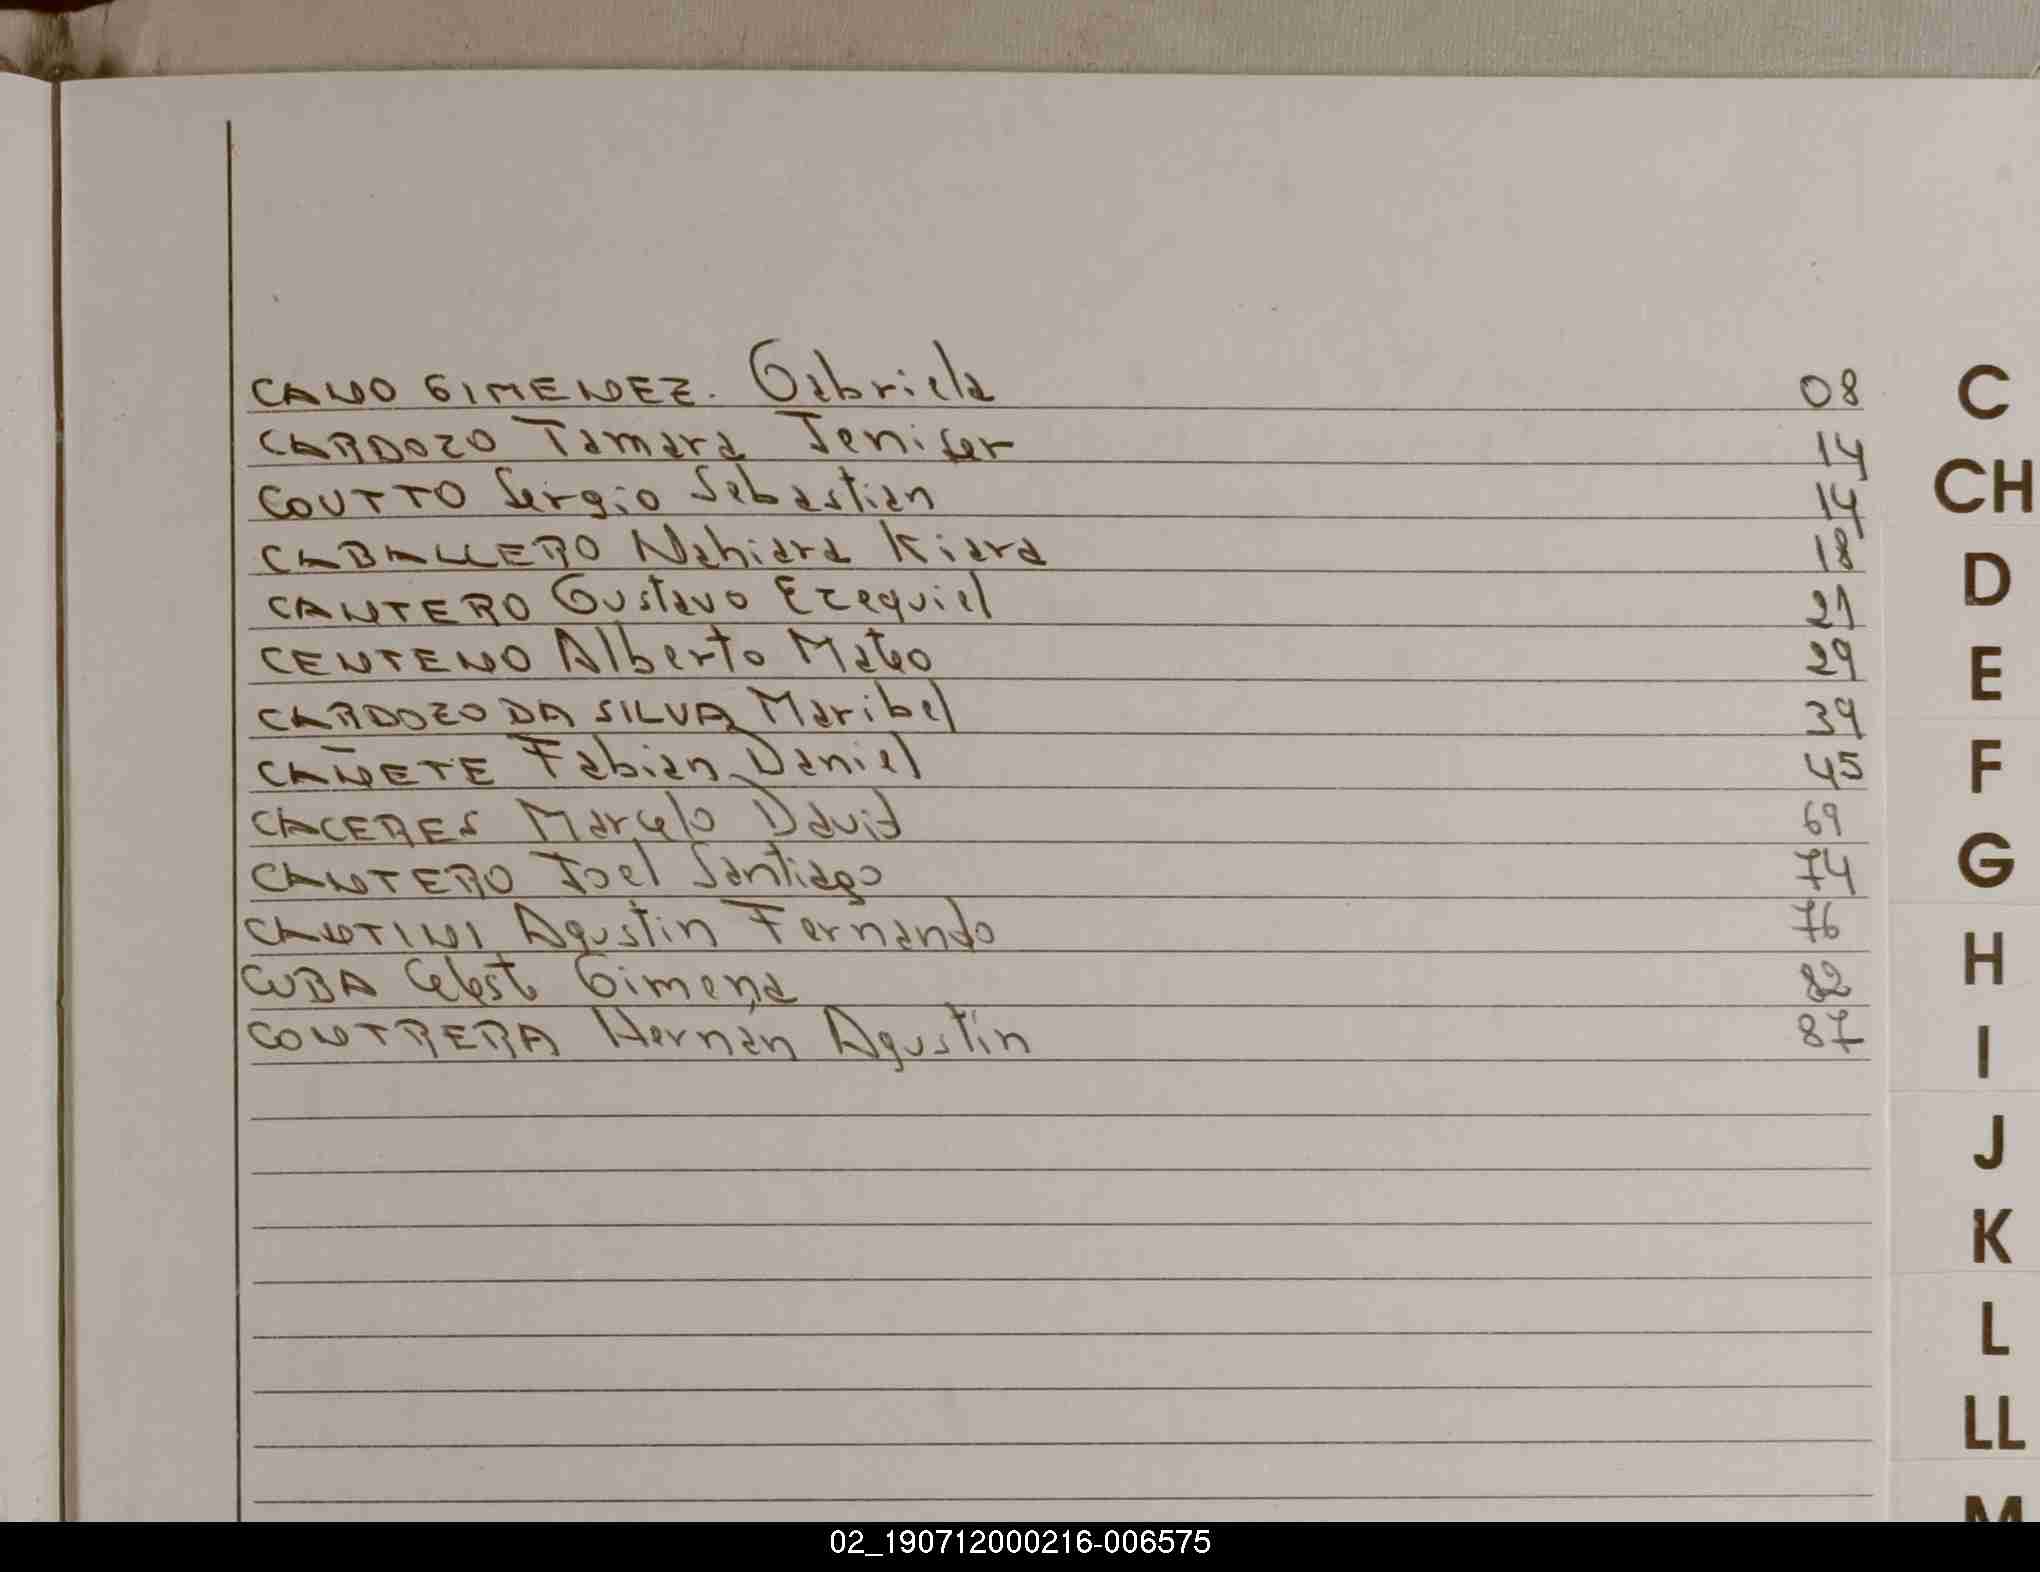 CANO GIMENEZ. Gabriela 08
CARDOZO Tamara Jenifer 14
COUTTO Sergio Sebastian 14
CABALLERO Nahiara Kiara 18
CANTERO Gustavo Ezequiel 21
CENTENO Alberto Mateo 29
CARDOZO DA SILVA Maribel 39
CAÑETE Fabian Daniel 45
CACERES Marcelo David 69
CANTERO Joel Santiago 74
CANTINI Agustin Fernando 76
CUBA Celeste Gimena 82
CONTRERA Hernán Agustín 87
C
CH
D
E
F
G
H
I
J
K
L
LL
M
02_190712000216-006575